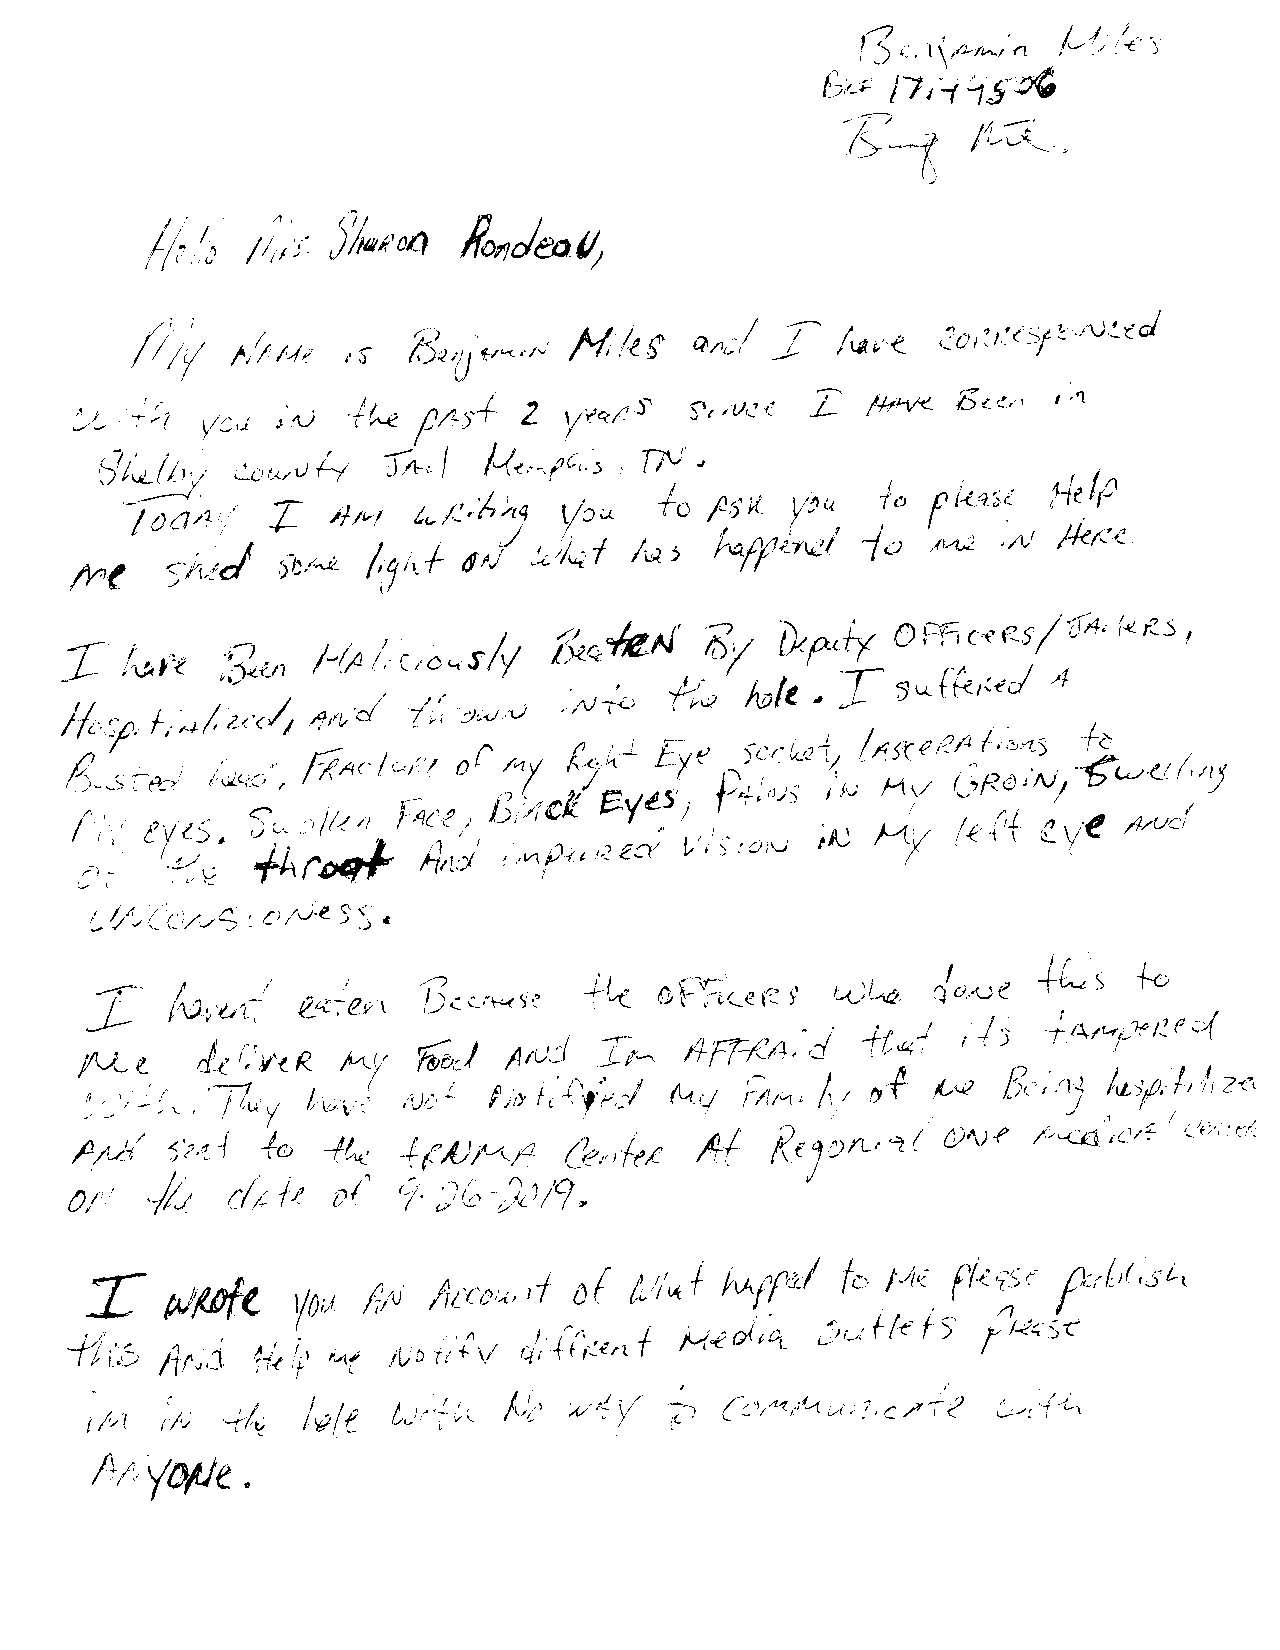 Benjamin Miles
17144506
Hello Mrs. Sharon Rondeau,
My NAMe is Benjamin Miles and I have corresponded
with you iN the pAst 2 years siNce I HAve Been in
Shelby couNty JAil Memphis, TN.
TodAy I AM wRiting you to Ask you to please Help
Me shed some light oN what has happened to me iN HeRe
I have Been MAliciously BeateN By Deputy OFFiceRs/JAileRs,
Hospitialized, ANd throwN iNto the hole. I suffeRed A
Busted head, FRActure of my Right Eye socket, lAsceRAtions to
My eyes. Swollen FAce, Black Eyes, PAiNs iN My GROiN, Swelling
of the throat And impaired visioN iN My left eye ANd
UNCoNsioNess.
I havent eaten Because the oFFiceRs who done this to
Me deliveR my Food ANd Im AFFRAid that its tAmpeRed
with. They have Not Notifyied my FAmily of me Being hospitilized
ANd sent to the tRAUMA CenteR At RegoniaL ONe MedicAl center
oN the dAte of 9-26-2019.
I wRote you AN AccouNt of What happed to Me please publish
this ANd Help me Notify diffRent Media outlets please
im iN the hole with No wAy to CoMMunicAte with
ANyoNe.